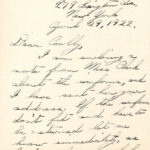 New York
April 29, 1922.
I am enclosing a
note from Miss Clark
about the uniforms, and
I have sent her your
address. If her uniform
don't fit and have to
be returned let me
know immediately, as